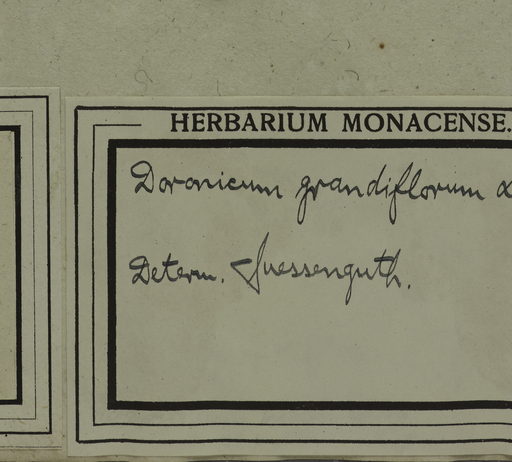 HERBARIUM MONACENSE.
Doronicum grandiflorum
Determ. Suessenguth.